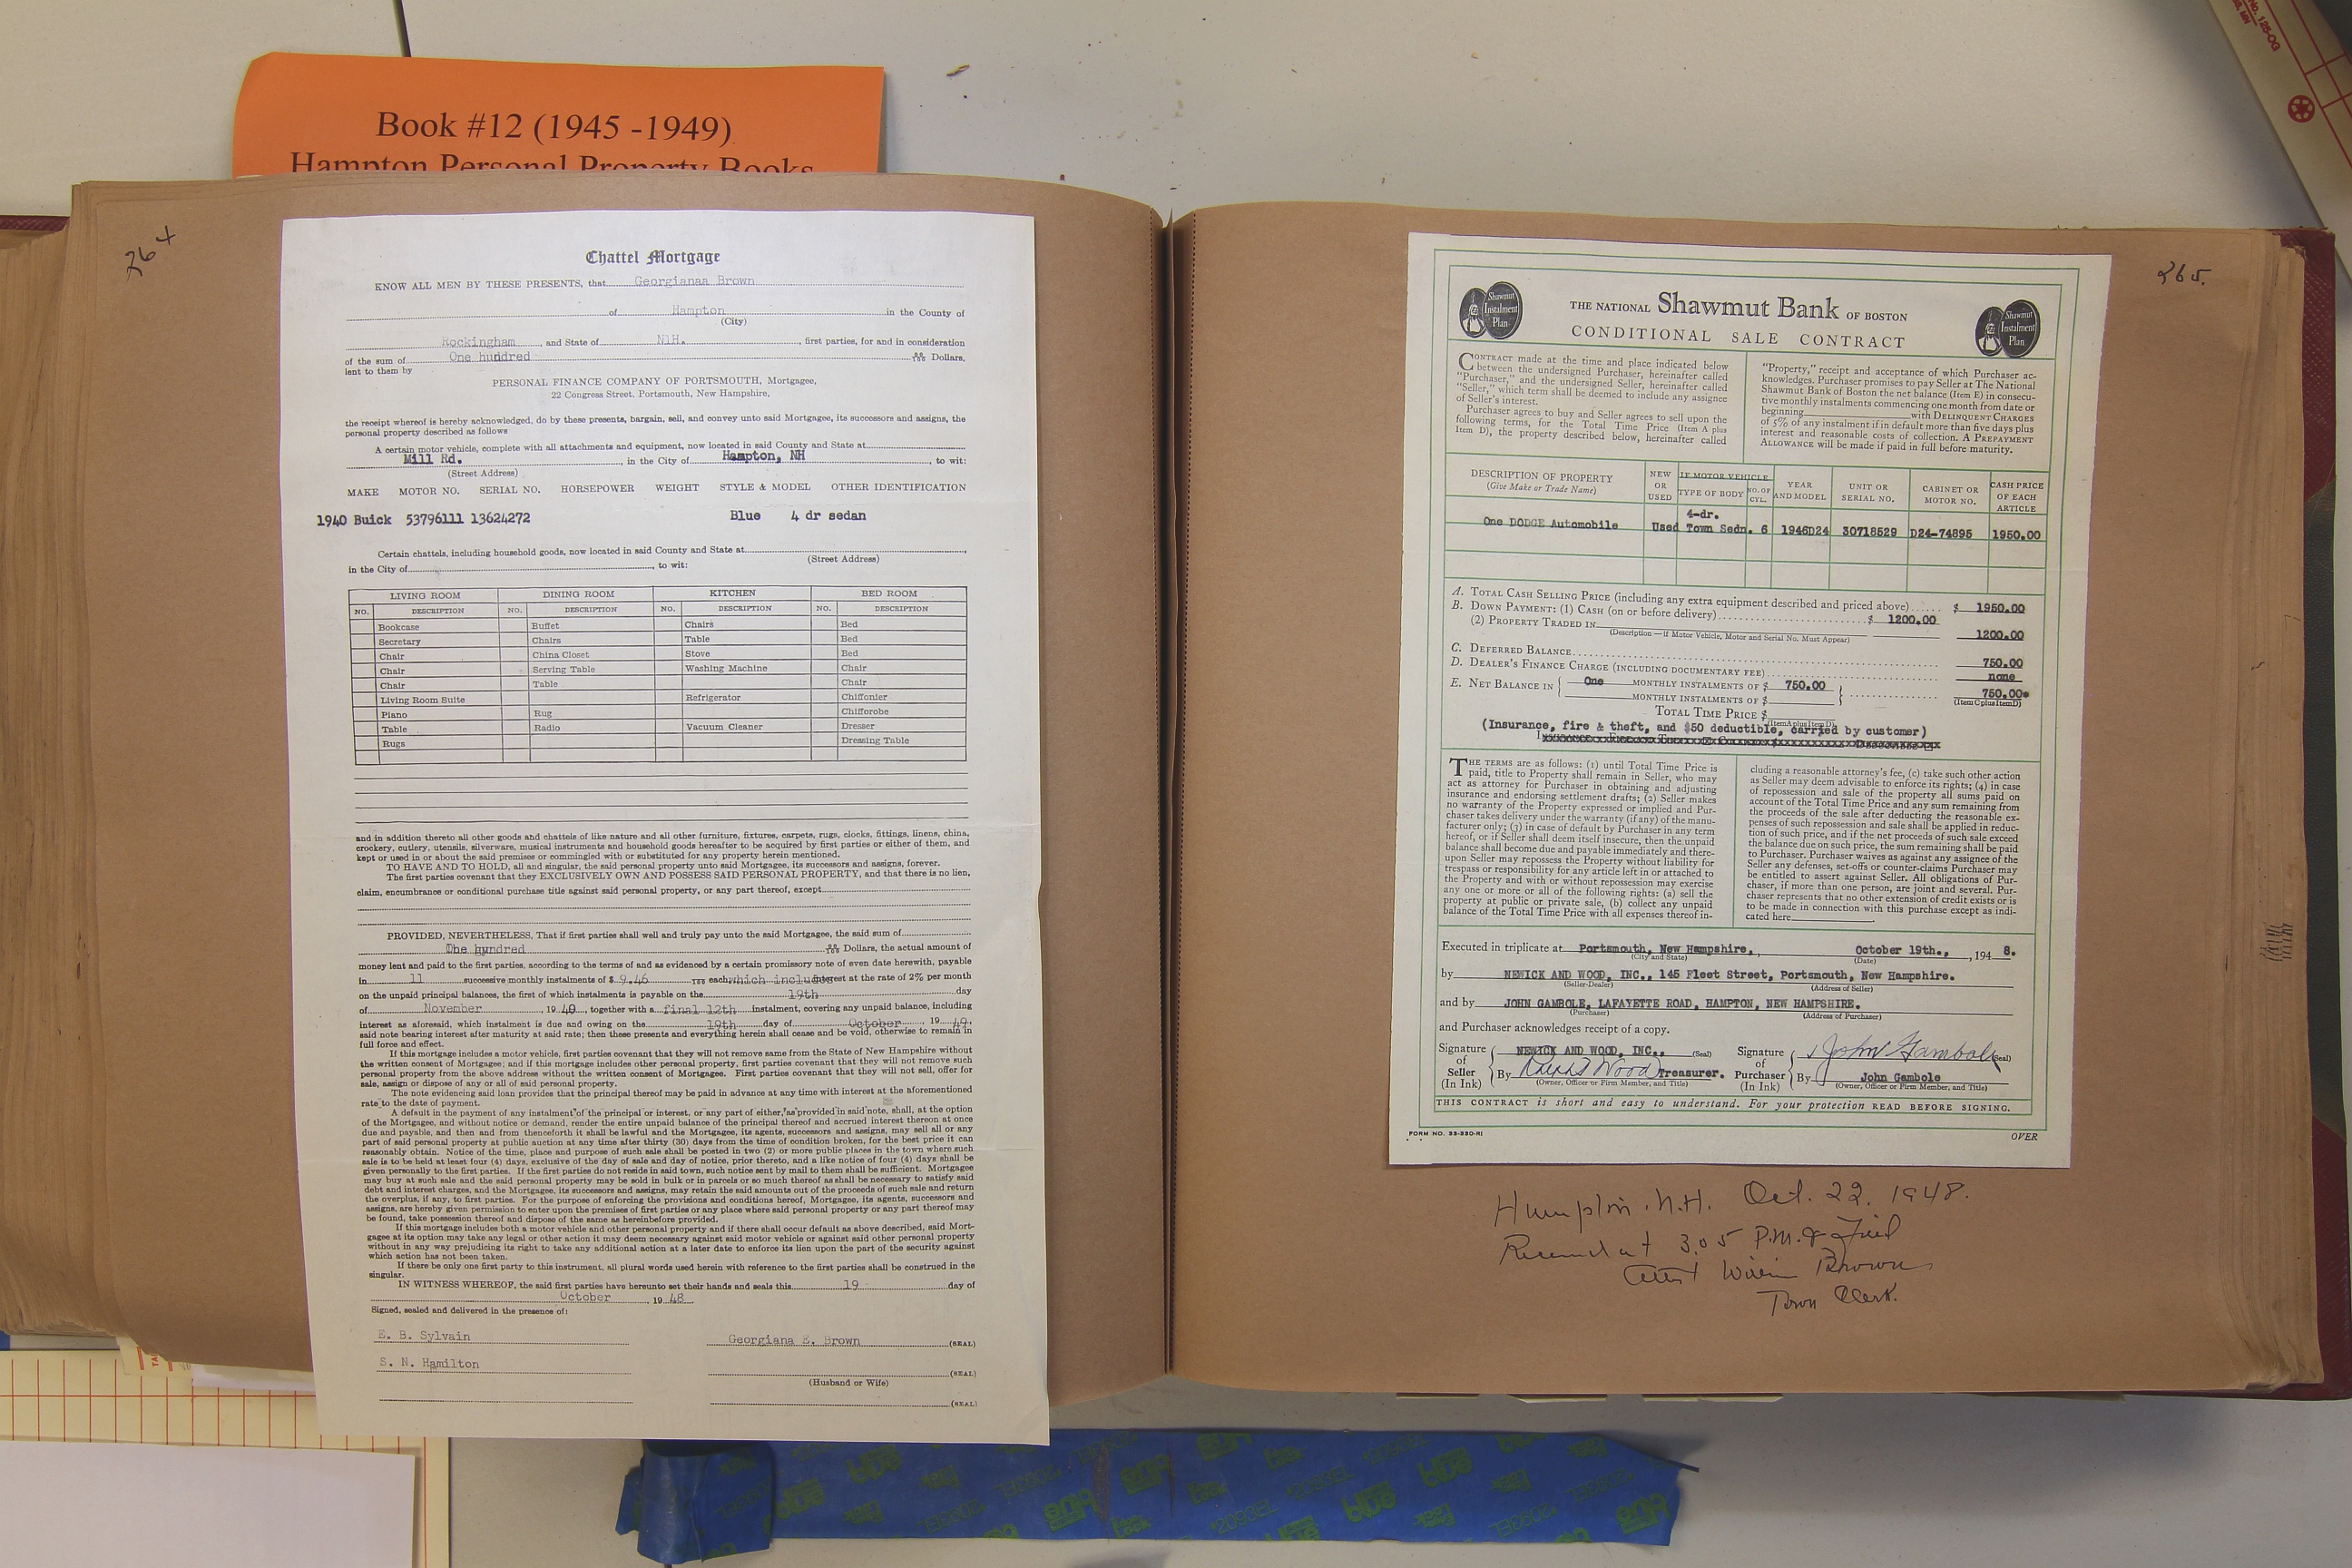 Book #12 (1945 -1949)
Hampton Personal Property Books
264
Chattel Mortgage
KNOW ALL MEN BY THESE PRESENTS, that Georgianaa Brown
of Hampton in the County of
(City)
Rockingham, and State of N.H., first parties, for and in consideration
of the sum of One hundred Dollars,
lent to them by
PERSONAL FINANCE COMPANY OF PORTSMOUTH, Mortgagee,
22 Congress Street, Portsmouth, New Hampshire,
the receipt whereof is hereby acknowledged, do by these presents, bargain, sell, and convey unto said Mortgagee, its successors and assigns, the
personal property described as follows
A certain motor vehicle, complete with all attachments and equipment, now located in said County and State at
Mill Rd. , in the City of Hampton, NH , to wit:
(Street Address)
MAKE MOTOR NO. SERIAL NO. HORSEPOWER WEIGHT STYLE & MODEL OTHER IDENTIFICATION
1940 Buick 53796111 13624272 Blue 4 dr sedan
Certain chattels, including household goods, now located in said County and State at
(Street Address)
in the City of , to wit:
LIVING ROOM DINING ROOM KITCHEN BED ROOM
NO. DESCRIPTION NO. DESCRIPTION NO. DESCRIPTION NO. DESCRIPTION
Bookcase Buffet Chairs Bed
Secretary Chairs Table Bed
Chair China Closet Stove Bed
Chair Serving Table Washing Machine Chair
Chair Table Chair
Living Room Suite Refrigerator Chiffonier
Piano Rug Chifforobe
Table Radio Vacuum Cleaner Dresser
Rugs Dressing Table
and in addition thereto all other goods and chattels of like nature and all other furniture, fixtures, carpets, rugs, clocks, fittings, linens, china,
crockery, cutlery, utensils, silverware, musical instruments and household goods hereafter to be acquired by first parties or either of them, and
kept or used in or about the said premises or commingled with or substituted for any property herein mentioned.
TO HAVE AND TO HOLD, all and singular, the said personal property unto said Mortgagee, its successors and assigns, forever.
The first parties covenant that they EXCLUSIVELY OWN AND POSSESS SAID PERSONAL PROPERTY, and that there is no lien,
claim, encumbrance or conditional purchase title against said personal property, or any part thereof, except
PROVIDED, NEVERTHELESS, That if first parties shall well and truly pay unto the said Mortgagee, the said sum of
One hundred Dollars, the actual amount of
money lent and paid to the first parties, according to the terms of and as evidenced by a certain promissory note of even date herewith, payable
in 11 successive monthly instalments of $ 9.46 each, which includes interest at the rate of 2% per month
on the unpaid principal balances, the first of which instalments is payable on the 19th day
of November, 1948, together with a final 12th instalment, covering any unpaid balance, including
interest as aforesaid, which instalment is due and owing on the 19th day of October, 1949,
said note bearing interest after maturity at said rate; then these presents and everything herein shall cease and be void, otherwise to remain in
full force and effect.
If this mortgage includes a motor vehicle, first parties covenant that they will not remove same from the State of New Hampshire without
the written consent of Mortgagee; and if this mortgage includes other personal property, first parties covenant that they will not remove such
personal property from the above address without the written consent of Mortgagee. First parties covenant that they will not sell, offer for
sale, assign or dispose of any or all of said personal property.
The note evidencing said loan provides that the principal thereof may be paid in advance at any time with interest at the aforementioned
rate to the date of payment.
A default in the payment of any instalment of the principal or interest, or any part of either, as provided in said note, shall, at the option
of the Mortgagee, and without notice or demand, render the entire unpaid balance of the principal thereof and accrued interest thereon at once
due and payable, and then and from thenceforth it shall be lawful and the Mortgagee, its agents, successors and assigns, may sell all or any
part of said personal property at public auction at any time after thirty (30) days from the time of condition broken, for the best price it can
reasonably obtain. Notice of the time, place and purpose of such sale shall be posted in two (2) or more public places in the town where such
sale is to be held at least four (4) days, exclusive of the day of sale and day of notice, prior thereto, and a like notice of four (4) days shall be
given personally to the first parties. If the first parties do not reside in said town, such notice sent by mail to them shall be sufficient. Mortgagee
may buy at such sale and the said personal property may be sold in bulk or in parcels or so much thereof as shall be necessary to satisfy said
debt and interest charges, and the Mortgagee, its successors and assigns, may retain the said amounts out of the proceeds of such sale and return
the overplus, if any, to first parties. For the purpose of enforcing the provisions and conditions hereof, Mortgagee, its agents, successors and
assigns, are hereby given permission to enter upon the premises of first parties or any place where said personal property or any part thereof may
be found, take possession thereof and dispose of the same as hereinbefore provided.
If this mortgage includes both a motor vehicle and other personal property and if there shall occur default as above described, said Mort-
gagee at its option may take any legal or other action it may deem necessary against said motor vehicle or against said other personal property
without in any way prejudicing its right to take any additional action at a later date to enforce its lien upon the part of the security against
which action has not been taken.
If there be only one first party to this instrument, all plural words used herein with reference to the first parties shall be construed in the
singular.
IN WITNESS WHEREOF, the said first parties have hereunto set their hands and seals this 19 day of
October, 1948.
Signed, sealed and delivered in the presence of:
E. B. Sylvain Georgiana E. Brown (SEAL)
S. N. Hamilton (SEAL)
(Husband or Wife)
(SEAL)
265.
Shawmut Instalment Plan
THE NATIONAL Shawmut Bank OF BOSTON
Shawmut Instalment Plan
CONDITIONAL SALE CONTRACT
CONTRACT made at the time and place indicated below
between the undersigned Purchaser, hereinafter called
"Purchaser," and the undersigned Seller, hereinafter called
"Seller," which term shall be deemed to include any assignee
of Seller's interest.
Purchaser agrees to buy and Seller agrees to sell upon the
following terms, for the Total Time Price (Item A plus
Item D), the property described below, hereinafter called
"Property," receipt and acceptance of which Purchaser ac-
knowledges. Purchaser promises to pay Seller at The National
Shawmut Bank of Boston the net balance (Item E) in consecu-
tive monthly instalments commencing one month from date or
beginning with DELINQUENT CHARGES
of 5% of any instalment if in default more than five days plus
interest and reasonable costs of collection. A PREPAYMENT
ALLOWANCE will be made if paid in full before maturity.
DESCRIPTION OF PROPERTY (Give Make or Trade Name) NEW OR USED IF MOTOR VEHICLE TYPE OF BODY NO. OF CYL. YEAR AND MODEL UNIT OR SERIAL NO. CABINET OR MOTOR NO. CASH PRICE OF EACH ARTICLE
4-dr.
One DODGE Automobile Used Town Sedn. 6 1946D24 30718529 D24-74895 1950.00
A. TOTAL CASH SELLING PRICE (including any extra equipment described and priced above) $ 1950.00
B. DOWN PAYMENT: (1) CASH (on or before delivery) $ 1200.00
(2) PROPERTY TRADED IN 1200.00
(Description—if Motor Vehicle, Motor and Serial No. Must Appear)
C. DEFERRED BALANCE 750.00
D. DEALER'S FINANCE CHARGE (INCLUDING DOCUMENTARY FEE) none
E. NET BALANCE IN One MONTHLY INSTALMENTS OF $ 750.00 750.00*
MONTHLY INSTALMENTS OF $ (Item C plus Item D)
TOTAL TIME PRICE $
(Item A plus Item D)
(Insurance, fire & theft, and $50 deductible, carried by customer)
THE TERMS are as follows: (1) until Total Time Price is
paid, title to Property shall remain in Seller, who may
act as attorney for Purchaser in obtaining and adjusting
insurance and endorsing settlement drafts; (2) Seller makes
no warranty of the Property expressed or implied and Pur-
chaser takes delivery under the warranty (if any) of the manu-
facturer only; (3) in case of default by Purchaser in any term
hereof, or if Seller shall deem itself insecure, then the unpaid
balance shall become due and payable immediately and there-
upon Seller may repossess the Property without liability for
trespass or responsibility for any article left in or attached to
the Property and with or without repossession may exercise
any one or more or all of the following rights: (a) sell the
property at public or private sale, (b) collect any unpaid
balance of the Total Time Price with all expenses thereof in-
cluding a reasonable attorney's fee, (c) take such other action
as Seller may deem advisable to enforce its rights; (4) in case
of repossession and sale of the property all sums paid on
account of the Total Time Price and any sum remaining from
the proceeds of the sale after deducting the reasonable ex-
penses of such repossession and sale shall be applied in reduc-
tion of such price, and if the net proceeds of such sale exceed
the balance due on such price, the sum remaining shall be paid
to Purchaser. Purchaser waives as against any assignee of the
Seller any defenses, set-offs or counter-claims Purchaser may
be entitled to assert against Seller. All obligations of Pur-
chaser, if more than one person, are joint and several. Pur-
chaser represents that no other extension of credit exists or is
to be made in connection with this purchase except as indi-
cated here
Executed in triplicate at Portsmouth, New Hampshire, October 19th., , 194 8.
(City and State) (Date)
by NEWICK AND WOOD, INC., 145 Fleet Street, Portsmouth, New Hampshire.
(Seller-Dealer) (Address of Seller)
and by JOHN GAMBOLE, LAFAYETTE ROAD, HAMPTON, NEW HAMPSHIRE.
(Purchaser) (Address of Purchaser)
and Purchaser acknowledges receipt of a copy.
Signature of Seller (In Ink) NEWICK AND WOOD, INC., (Seal)
By Ralph Wood Treasurer.
(Owner, Officer or Firm Member, and Title)
Signature of Purchaser (In Ink) John Gambole (Seal)
By John Gambole
(Owner, Officer or Firm Member, and Title)
THIS CONTRACT is short and easy to understand. For your protection READ BEFORE SIGNING.
FORM NO. 53-330-RI OVER
Hampton. N.H. Oct. 22. 1948.
Received at 3.05 P.M. & Filed
Attest William Brown
Town Clerk.